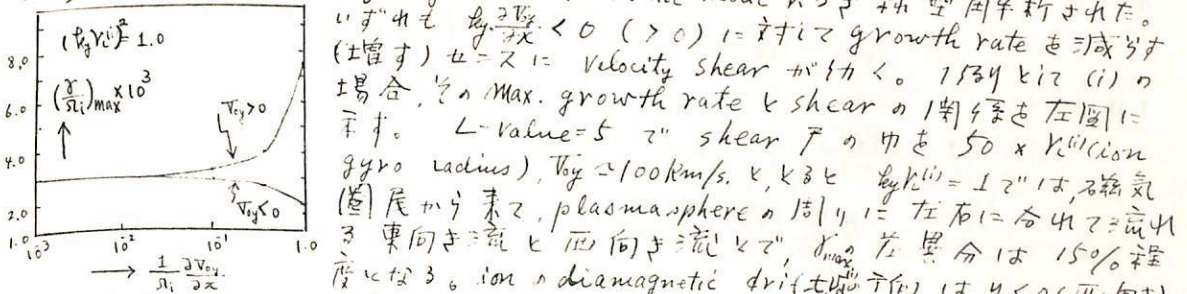 (k_y r_c^(i))^2 = 1.0
(γ/Ω_i)_max × 10^3
V_oy > 0
V_oy < 0
8.0
6.0
4.0
2.0
1.0
10^-3
10^-2
10^-1
1.0
→ 1/Ω_i ∂V_oy/∂x
いずれも k_y ∂V_oy/∂x < 0 (> 0) に対して growth rate を減らす
(増す) センスに velocity shear が効く。 1例として (i) の
場合、その max. growth rate と shear の関係を左図に
示す。 L-value = 5 で shear の巾を 50 × r_c^(i) (ion
gyro radius), V_oy ≃ 100 km/s. と、とると k_y r_c^(i) = 1 では、磁気
圏尾から来て、plasmasphere の周りに左右に分れて流れ
る東向き流と西向き流とで、γ_max の差異分は 15% 程
度になる。 ion の diamagnetic drift